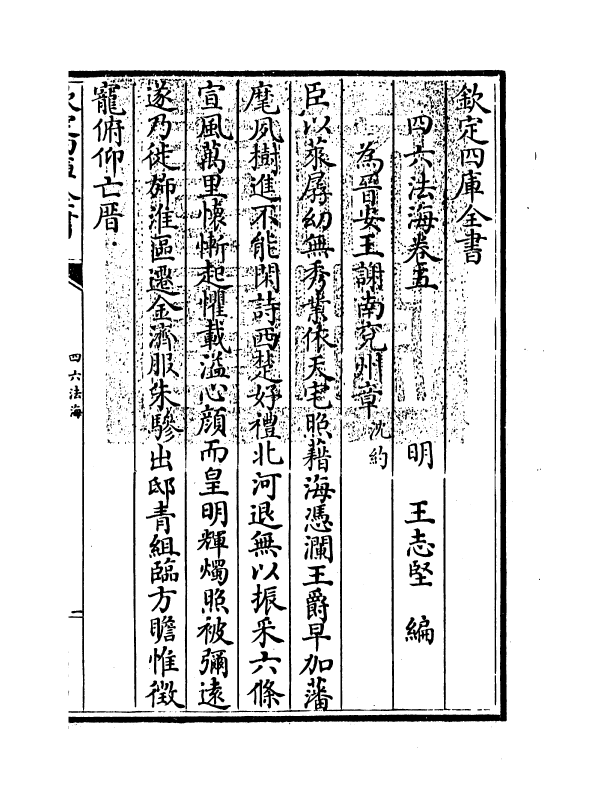 欽定四庫全書
四六法海卷五
明 王志堅 編
為晉安王謝南兖州章 沈約
臣以蓀孱幼無秀業依天宅照藉海憑瀾王爵早加藩
麾夙樹進不能閑詩西楚好禮北河退無以振采六條
宣風萬里懐慚起懼載溢心顔而皇明輝燭照被彌逺
遂乃徙姉淮區遷金濟服朱驂出邸青組臨方瞻惟徵
寵俯仰亡厝
四六法海